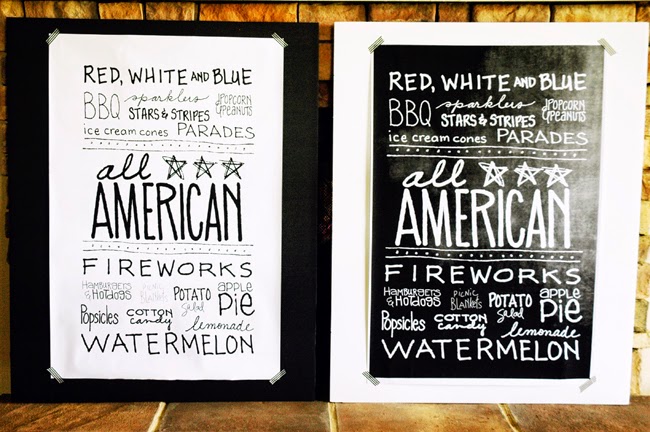 RED, WHITE AND BLUE
BBQ sparklers POPCORN
STARS & STRIPES & PEANUTS
ice cream cones PARADES
all
AMERICAN
FIREWORKS
HAMBURGERS & HOTDOGS PICNIC BLANKETS POTATO salad apple Pie
Popsicles COTTON candy lemonade
WATERMELON
RED, WHITE AND BLUE
BBQ sparklers POPCORN
STARS & STRIPES & PEANUTS
ice cream cones PARADES
all
AMERICAN
FIREWORKS
HAMBURGERS & HOTDOGS PICNIC BLANKETS POTATO salad apple Pie
Popsicles COTTON candy lemonade
WATERMELON